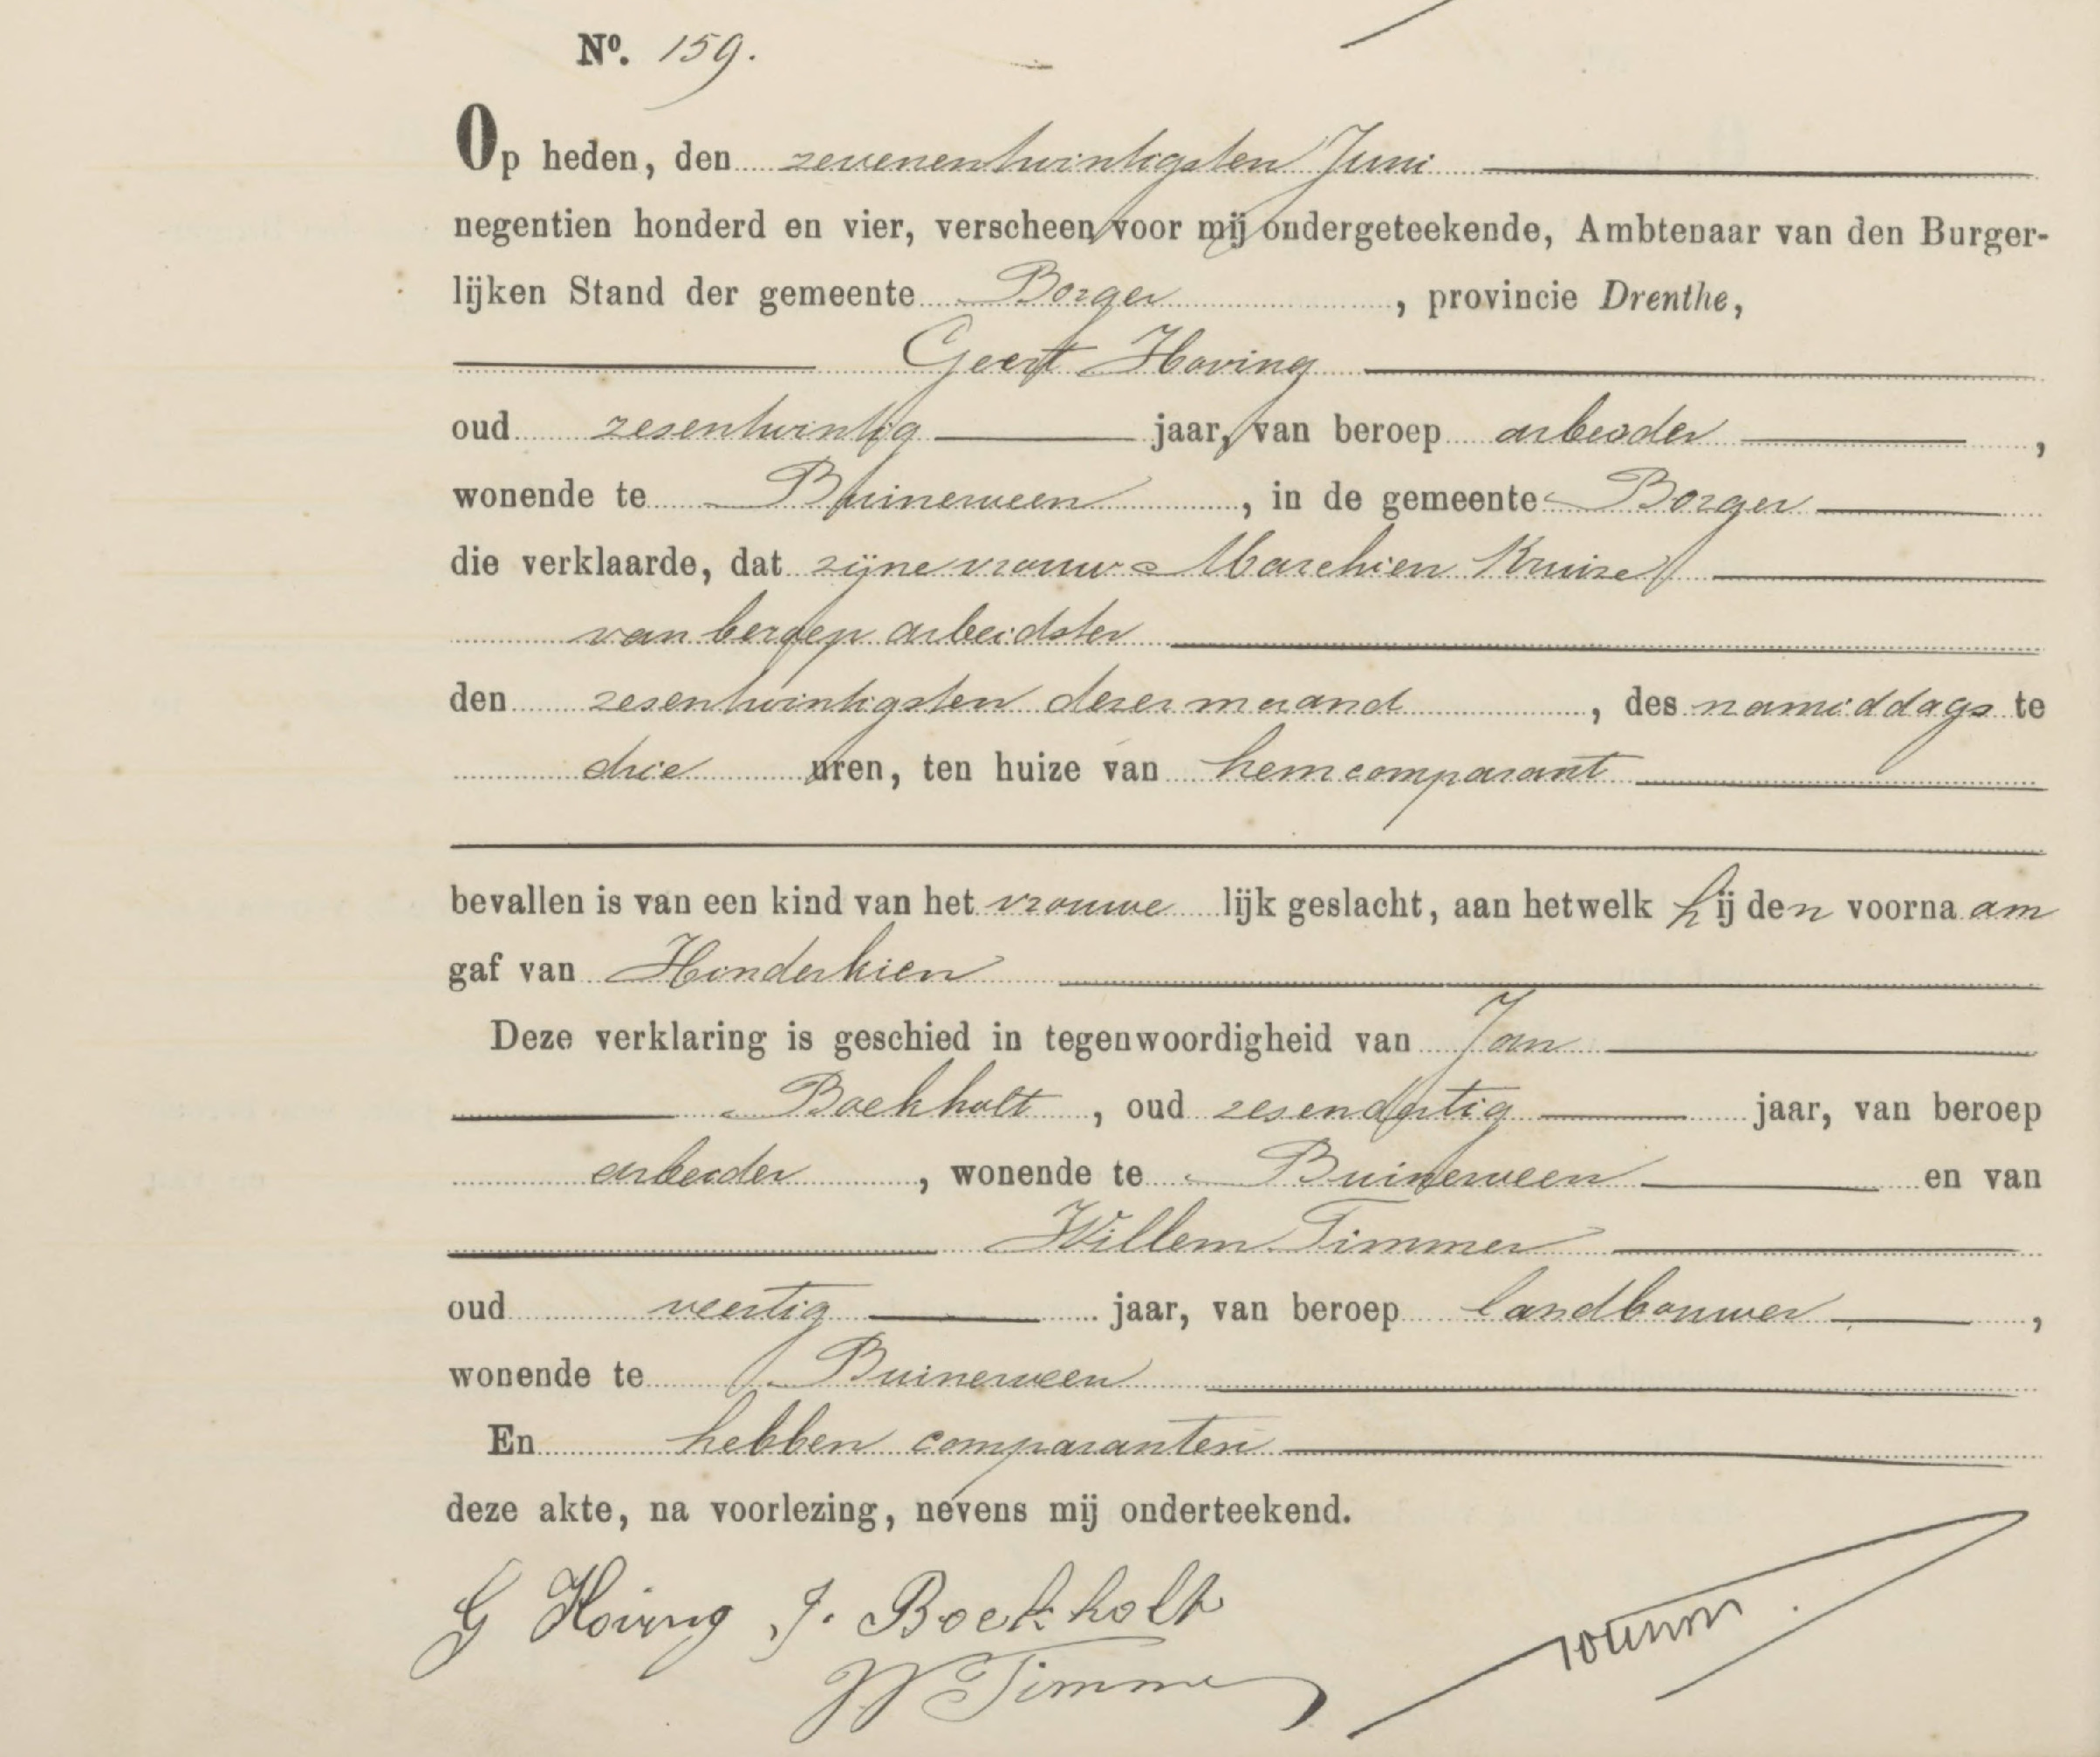 Nº. 159.
Op heden, den zevenentwintigsten Juni
negentien honderd en vier, verscheen voor mij ondergeteekende, Ambtenaar van den Burger-
lijken Stand der gemeente Borger, provincie Drenthe,
Geert Hoving
oud zesentwintig jaar, van beroep arbeider,
wonende te Buinerveen, in de gemeente Borger
die verklaarde, dat zijne vrouw Marchien Kruize
van beroep arbeidster
den zesentwintigsten dezer maand, des namiddags te
drie uren, ten huize van hem comparant
bevallen is van een kind van het vrouwelijk geslacht, aan hetwelk hij den voornaam
gaf van Hinderkien
Deze verklaring is geschied in tegenwoordigheid van Jan
Boekholt, oud zesendertig jaar, van beroep
arbeider, wonende te Buinerveen en van
Willem Timmer
oud veertig jaar, van beroep landbouwer,
wonende te Buinerveen
En hebben comparanten
deze akte, na voorlezing, nevens mij onderteekend.
G Hoving J. Boekholt
W Timmer